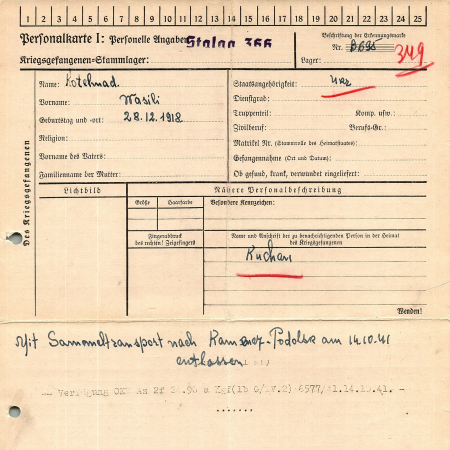 1 2 3 4 5 6 7 8 9 10 11 12 13 14 15 16 17 18 19 20 21 22 23 24 25
Personalkarte I: Personelle Angaben Stalag 366
Beschriftung der Erkennungsmarke
Nr.
Kriegsgefangenen-Stammlager:
Lager:
349
Des Kriegsgefangenen
Name:
Vorname: Wasili
Geburtstag und -ort: 28.12.1918
Religion:
Vorname des Vaters:
Familienname der Mutter:
Staatsangehörigkeit: Ukr
Dienstgrad:
Truppenteil: Komp. usw.:
Zivilberuf: Berufs-Gr.:
Matrikel Nr. (Stammrolle des Heimatstaates):
Gefangennahme (Ort und Datum):
Ob gesund, krank, verwundet eingeliefert:
Lichtbild
Nähere Personalbeschreibung
Größe Haarfarbe Besondere Kennzeichen:
Fingerabdruck
des rechten! Zeigefingers
Name und Anschrift der zu benachrichtigenden Person in der Heimat
des Kriegsgefangenen
Wenden!
Mit Sammeltransport nach Kamenez-Podolsk am 14.10.41
entlassen
Verfügung OKW Az 2f